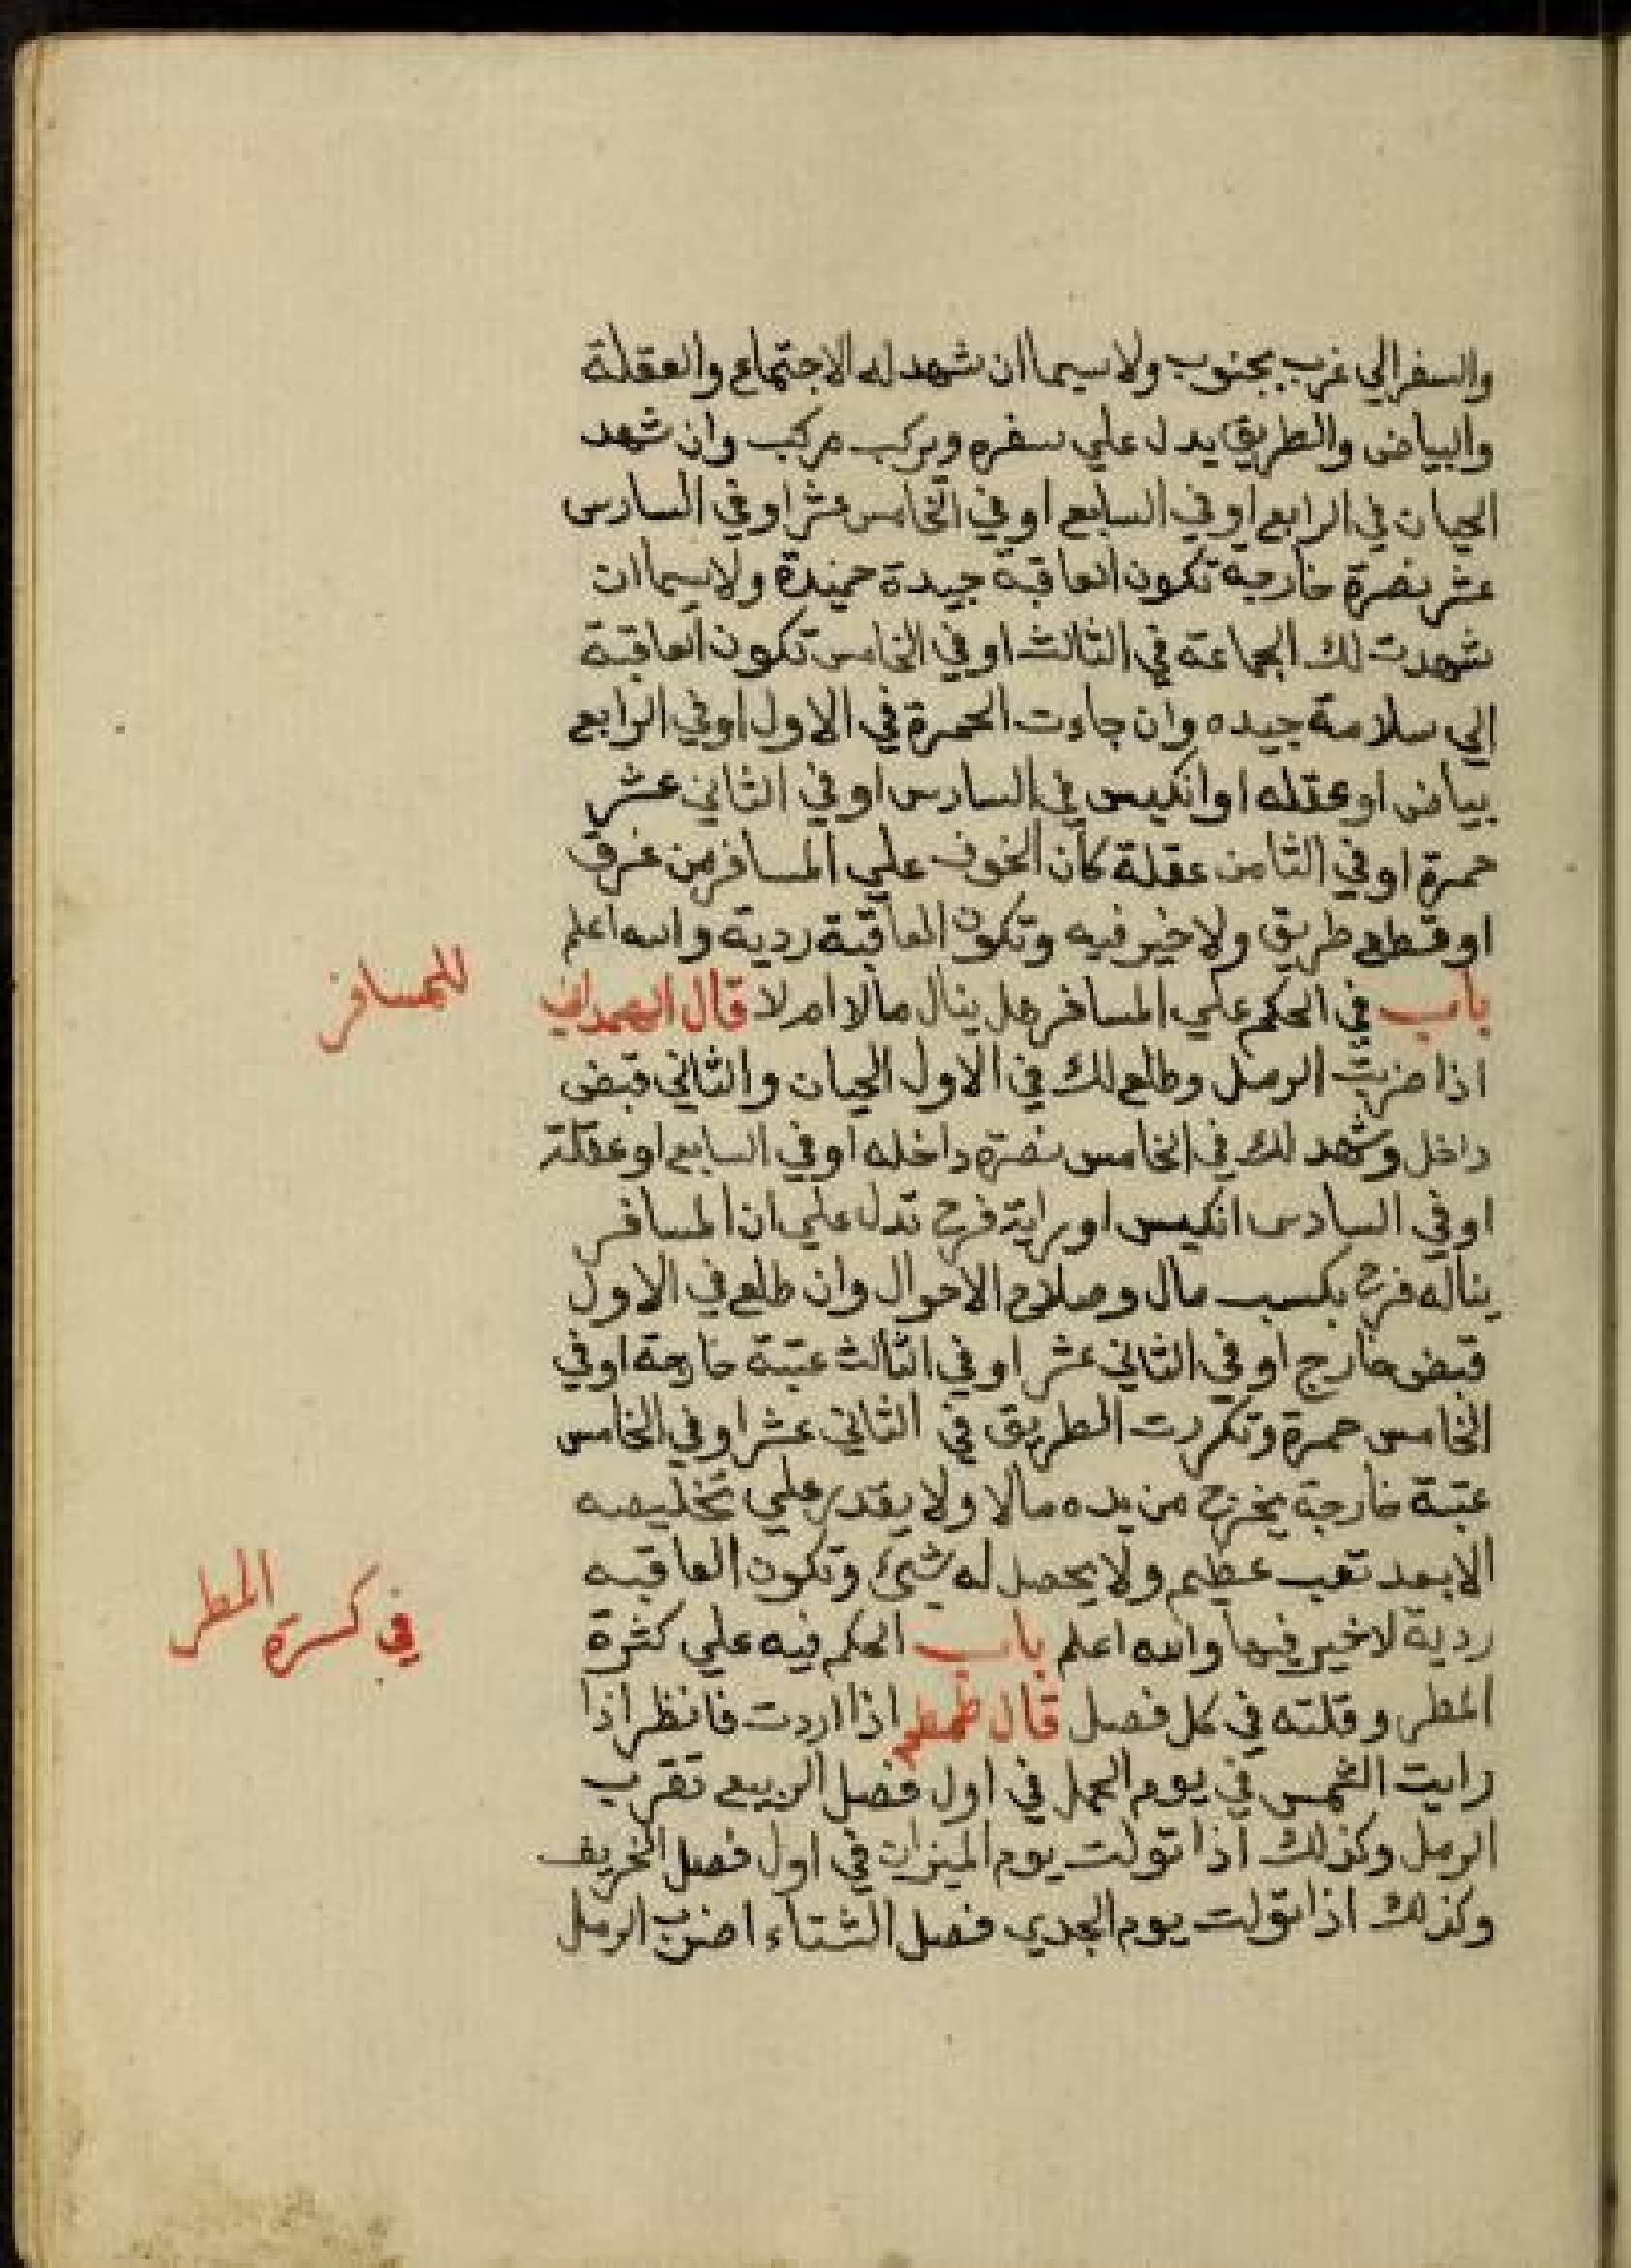 والسفر الي غرب بجنوب ولاسيما ان شهد له الاجتماع والعقلة
والبياض والطريق يدل علي سفره ويركب مركب وان شهد
الحيان في الرابع او في السابع او في الخامس عشر او في السادس
عشر نصرة خارجة تكون العاقبة جيدة حميدة ولاسيما ان
شهدت لك الجماعة في الثالث او في الخامس تكون العاقبة
الي سلامة جيده وان جاءت الحمرة في الاول او في الرابع
بياض او عقله او انكيس في السادس او في الثاني عشر
حمرة او في الثامن عقلة كان الخوف علي المسافر من غرق
او قطع طريق ولا خير فيه وتكون العاقبة ردية والله اعلم
باب في الحكم علي المسافر هل ينال مالا ام لا قال الهمداني
للمسافر
اذا ضربت الرمل وطلع لك في الاول الحيان والثاني قبض
داخل وشهد لك في الخامس نصرة داخله او في السابع او عقلة
او في السادس انكيس او راية فرح تدل علي ان المسافر
يناله فرح بكسب مال وصلاح الاحوال وان طلع في الاول
قبض خارج او في الثاني عشر او في الثالث عتبة خارجة او في
الخامس حمرة وتكررت الطريق في الثاني عشر او في الخامس
عتبة خارجة يخرج من يده مالا ولا يقدر علي تخليصه
الا بعد تعب عظيم ولا يحصل له شيئ وتكون العاقبه
ردية لا خير فيها والله اعلم باب الحكم فيه علي كثرة
في كسرة المطر
المطر وقلته في كل فصل قال طمطم اذا اردت فانظر اذا
رايت الشمس في يوم الحمل في اول فصل الربيع تقرب
الرمل وكذلك اذا تولت يوم الميزان في اول فصل الخريف
وكذلك اذا تولت يوم الجدي فصل الشتاء اضرب الرمل